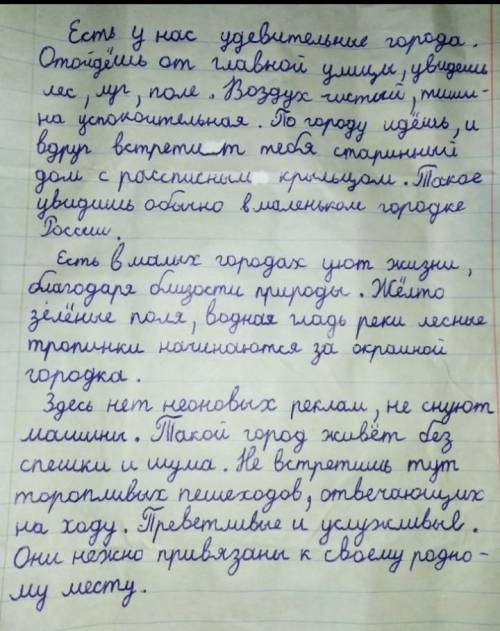 Есть у нас удевительные города.
Отойдёшь от главной улицы, увидешь
лес, луг, поле. Воздух чистый, тиши-
на успокоительная. По городу идёшь, и
вдруг встретит тебя старинный
дом с россписным крыльцом. Такое
увидишь обычно в маленьком городке
России.
Есть в малых городах уют жизни,
благодаря близости природы. Жёлто
зелёные поля, водная гладь реки лесные
тропинки начинаются за окраиной
городка.
Здесь нет неоновых реклам, не снуют
машины. Такой город живёт без
спешки и шума. Не встретишь тут
торопливых пешеходов, отвечающих
на ходу. Преветливые и услужливыв.
Они нежно привязаны к своему родно-
му месту.